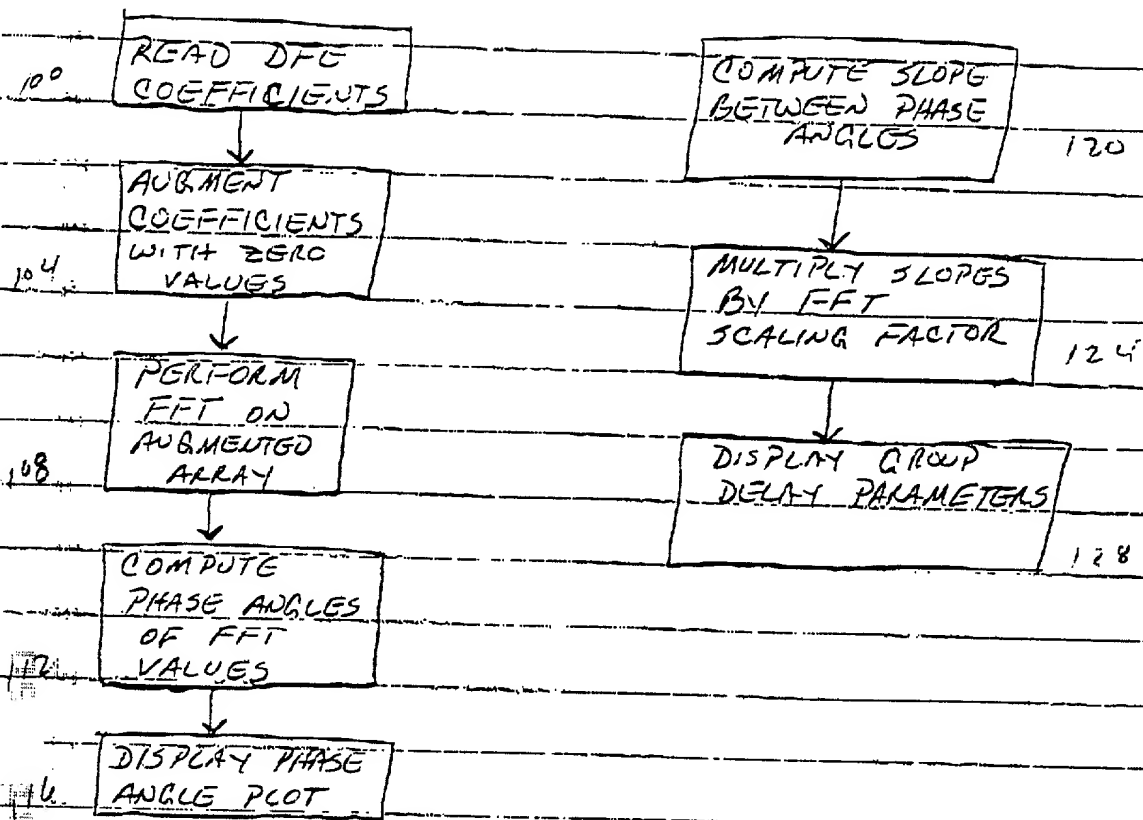 READ DFE
COEFFICIENTS
100
AUGMENT
COEFFICIENTS
WITH ZERO
VALUES
104
PERFORM
FFT ON
AUGMENTED
ARRAY
108
COMPUTE
PHASE ANGLES
OF FFT
VALUES
112
DISPLAY PHASE
ANGLE PLOT
116
COMPUTE SLOPE
BETWEEN PHASE
ANGLES
120
MULTIPLY SLOPES
BY FFT
SCALING FACTOR
124
DISPLAY GROUP
DELAY PARAMETERS
128